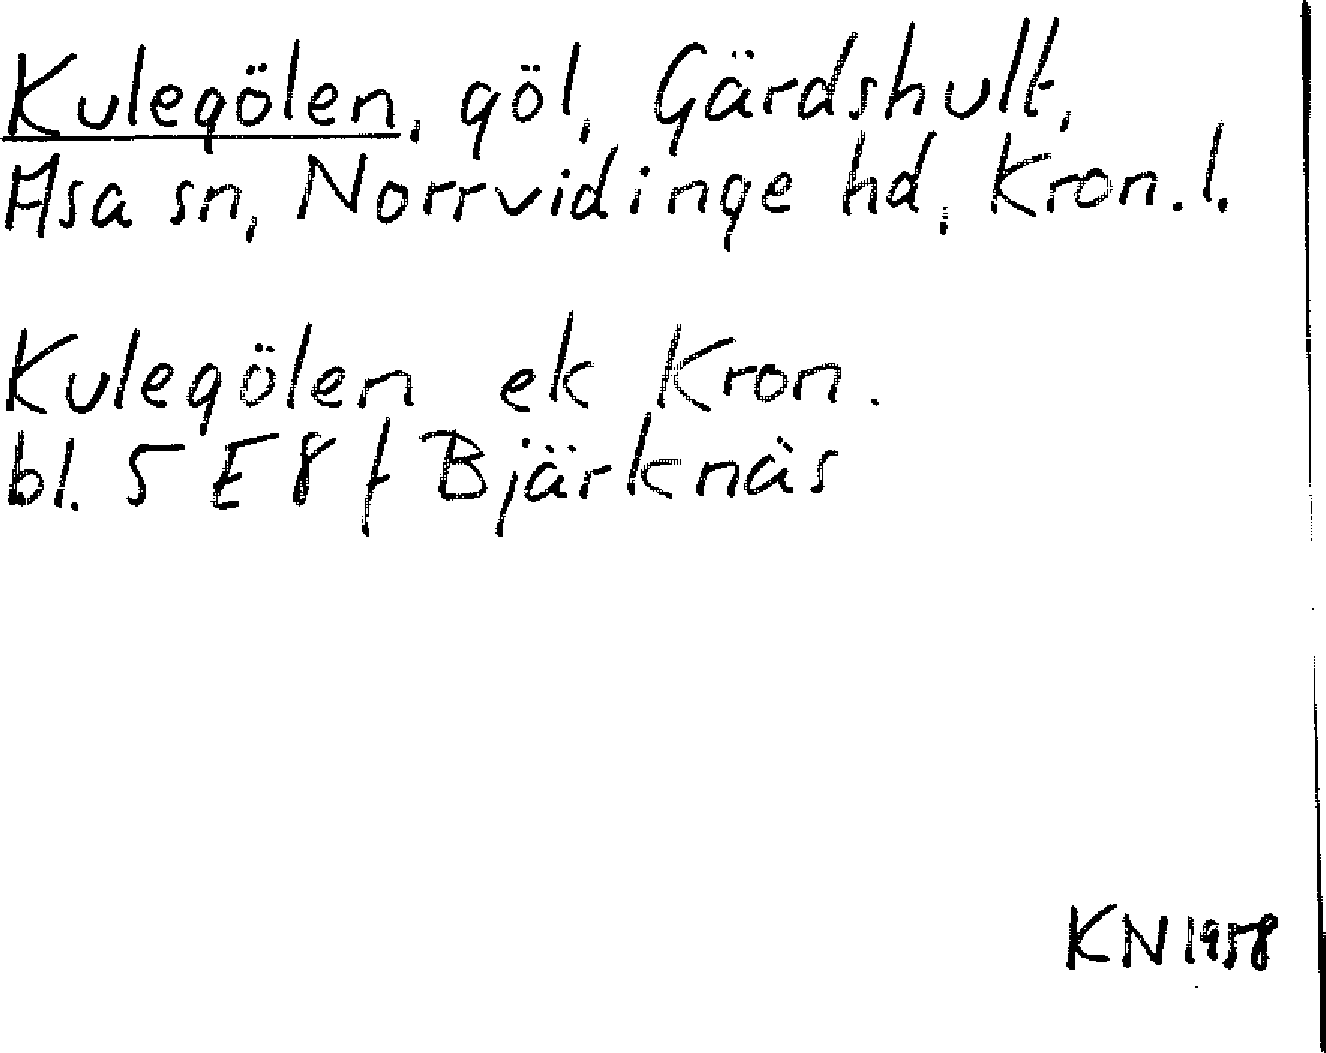 Kulegölen, göl, Gärdshult,
Asa sn, Norrvidinge hd, Kron. l.
Kulegölen ek Kron.
bl. 5 E 8 f Bjärknäs
KN 1958